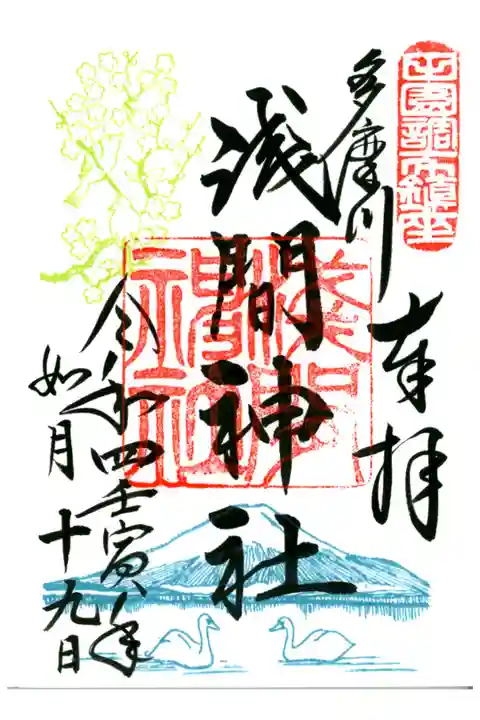 田園調布鎮座
奉拝
多摩川
浅間神社
浅間神社
令和四壬寅年
如月十九日